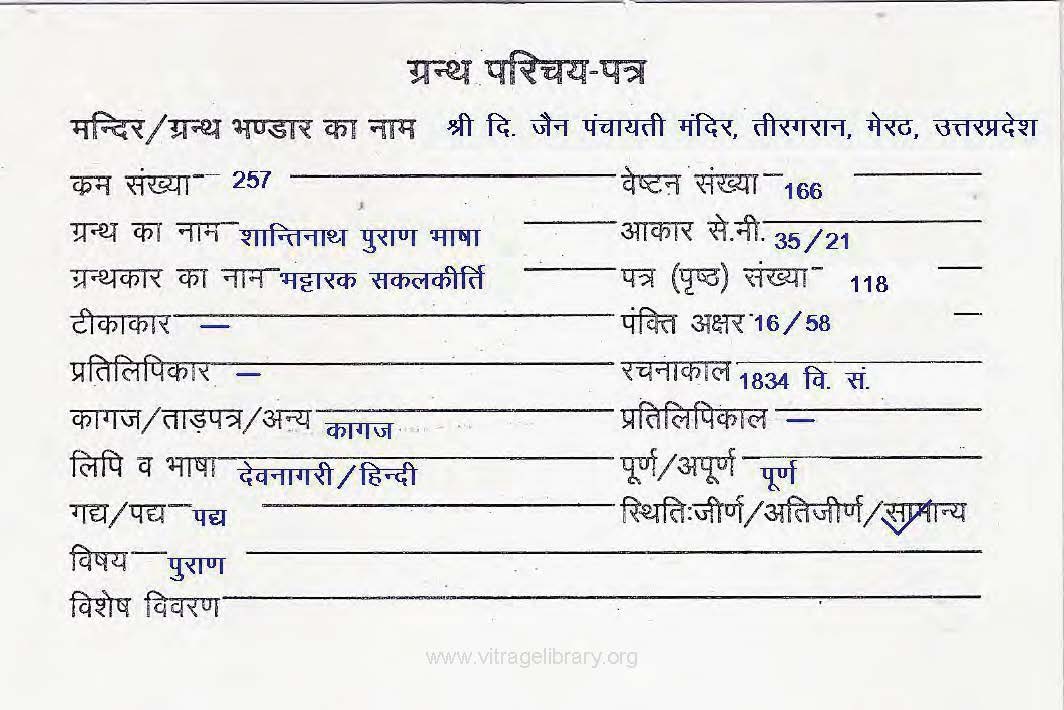 ग्रन्थ परिचय-पत्र
मन्दिर/ग्रन्थ भण्डार का नाम श्री दि. जैन पंचायती मंदिर, तीरगरान, मेरठ, उत्तरप्रदेश
क्रम संख्या 257 वेष्टन संख्या 166
ग्रन्थ का नाम शान्तिनाथ पुराण भाषा आकार से.मी. 35/21
ग्रन्थकार का नाम भट्टारक सकलकीर्ति पत्र (पृष्ठ) संख्या 118
टीकाकार — पंक्ति अक्षर 16/58
प्रतिलिपिकार — रचनाकाल 1834 वि. सं.
कागज/ताड़पत्र/अन्य कागज प्रतिलिपिकाल —
लिपि व भाषा देवनागरी/हिन्दी पूर्ण/अपूर्ण पूर्ण
गद्य/पद्य पद्य स्थिति:जीर्ण/अतिजीर्ण/सामान्य
विषय पुराण
विशेष विवरण
www.vitragelibrary.org